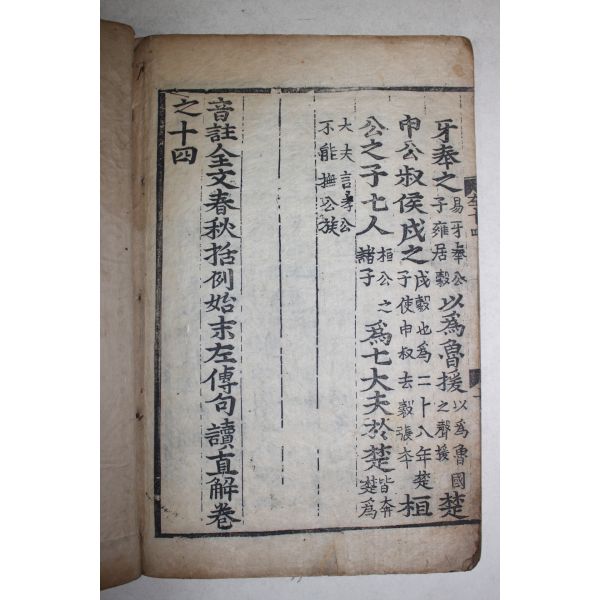 牙奉之易牙奉公子雍居穀以爲魯援以爲魯國之聲援楚
申公叔侯戍之戍穀也爲二十八年楚子使申叔去穀張本桓
公之子七人桓公之諸子爲七大夫於楚皆奔楚爲
大夫言孝公不能撫公族
音註全文春秋括例始末左傳句讀直解卷
之十四